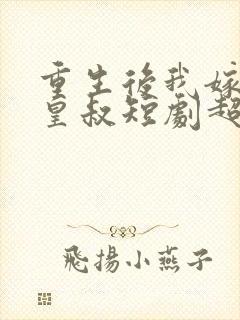 重生後我嫁
皇叔短劇超
飛揚小燕子